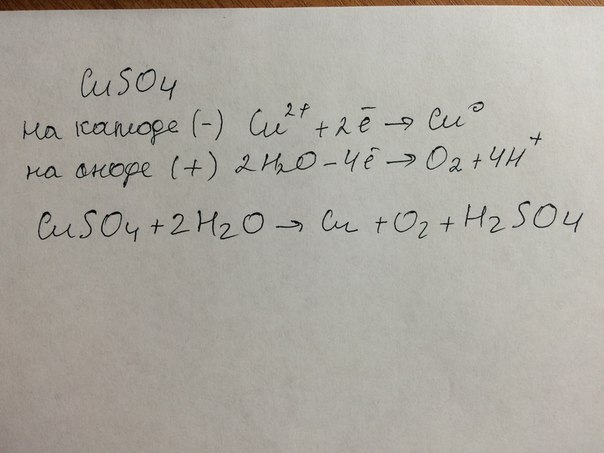 CuSO4
на катоде (-) Cu²⁺ + 2ē → Cu⁰
на аноде (+) 2H2O - 4ē → O2 + 4H⁺
CuSO4 + 2H2O → Cu + O2 + H2SO4